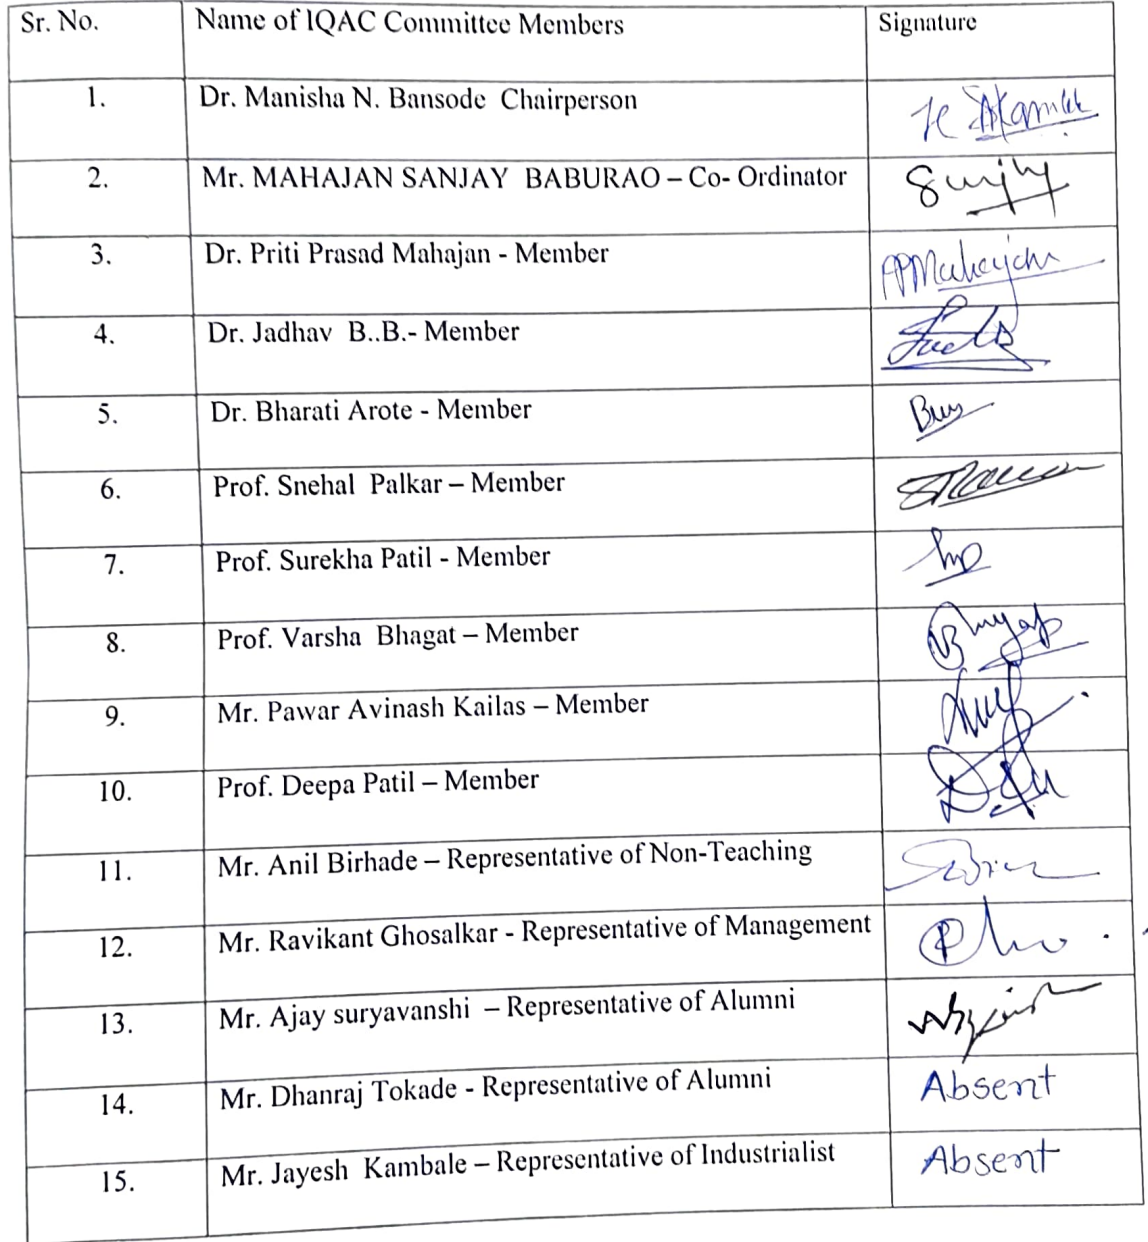 Sr. No. Name of IQAC Committee Members Signature
1. Dr. Manisha N. Bansode Chairperson
2. Mr. MAHAJAN SANJAY BABURAO – Co- Ordinator
3. Dr. Priti Prasad Mahajan - Member PPMahajan
4. Dr. Jadhav B..B.- Member
5. Dr. Bharati Arote - Member
6. Prof. Snehal Palkar – Member
7. Prof. Surekha Patil - Member
8. Prof. Varsha Bhagat – Member
9. Mr. Pawar Avinash Kailas – Member
10. Prof. Deepa Patil – Member
11. Mr. Anil Birhade – Representative of Non-Teaching
12. Mr. Ravikant Ghosalkar - Representative of Management
13. Mr. Ajay suryavanshi – Representative of Alumni
14. Mr. Dhanraj Tokade - Representative of Alumni Absent
15. Mr. Jayesh Kambale – Representative of Industrialist Absent